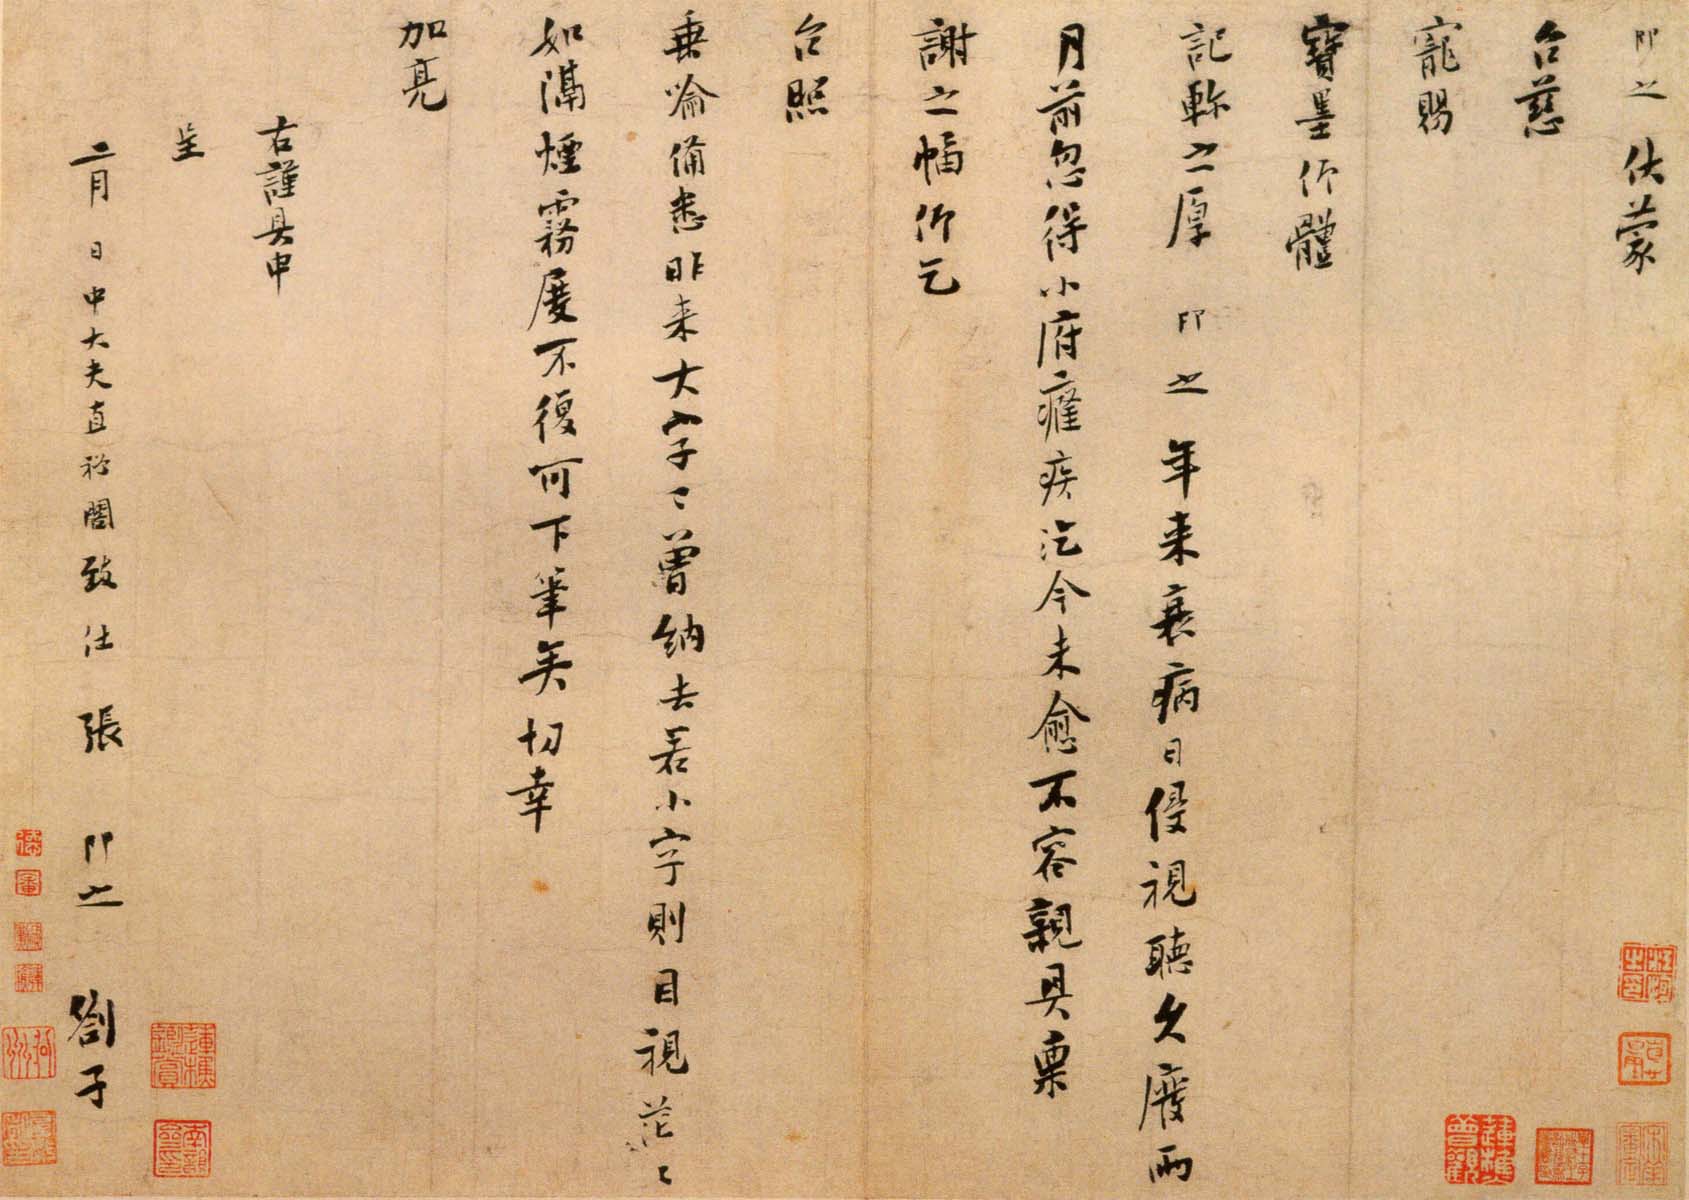 即之伏蒙
台慈
寵賜
寶墨仰體
記軫之厚即之年来衰病日侵視聽久廢兩
月前忽得小府癰疾迄今未愈不容親具稟
謝之幅仰乞
台照
垂喻備悉昨来大字〻曾納去若小字則目視茫〻
如隔煙霧屡不復可下筆矣切幸
加亮
右謹具申
呈
二月日中大夫直祕閣致仕張即之劄子